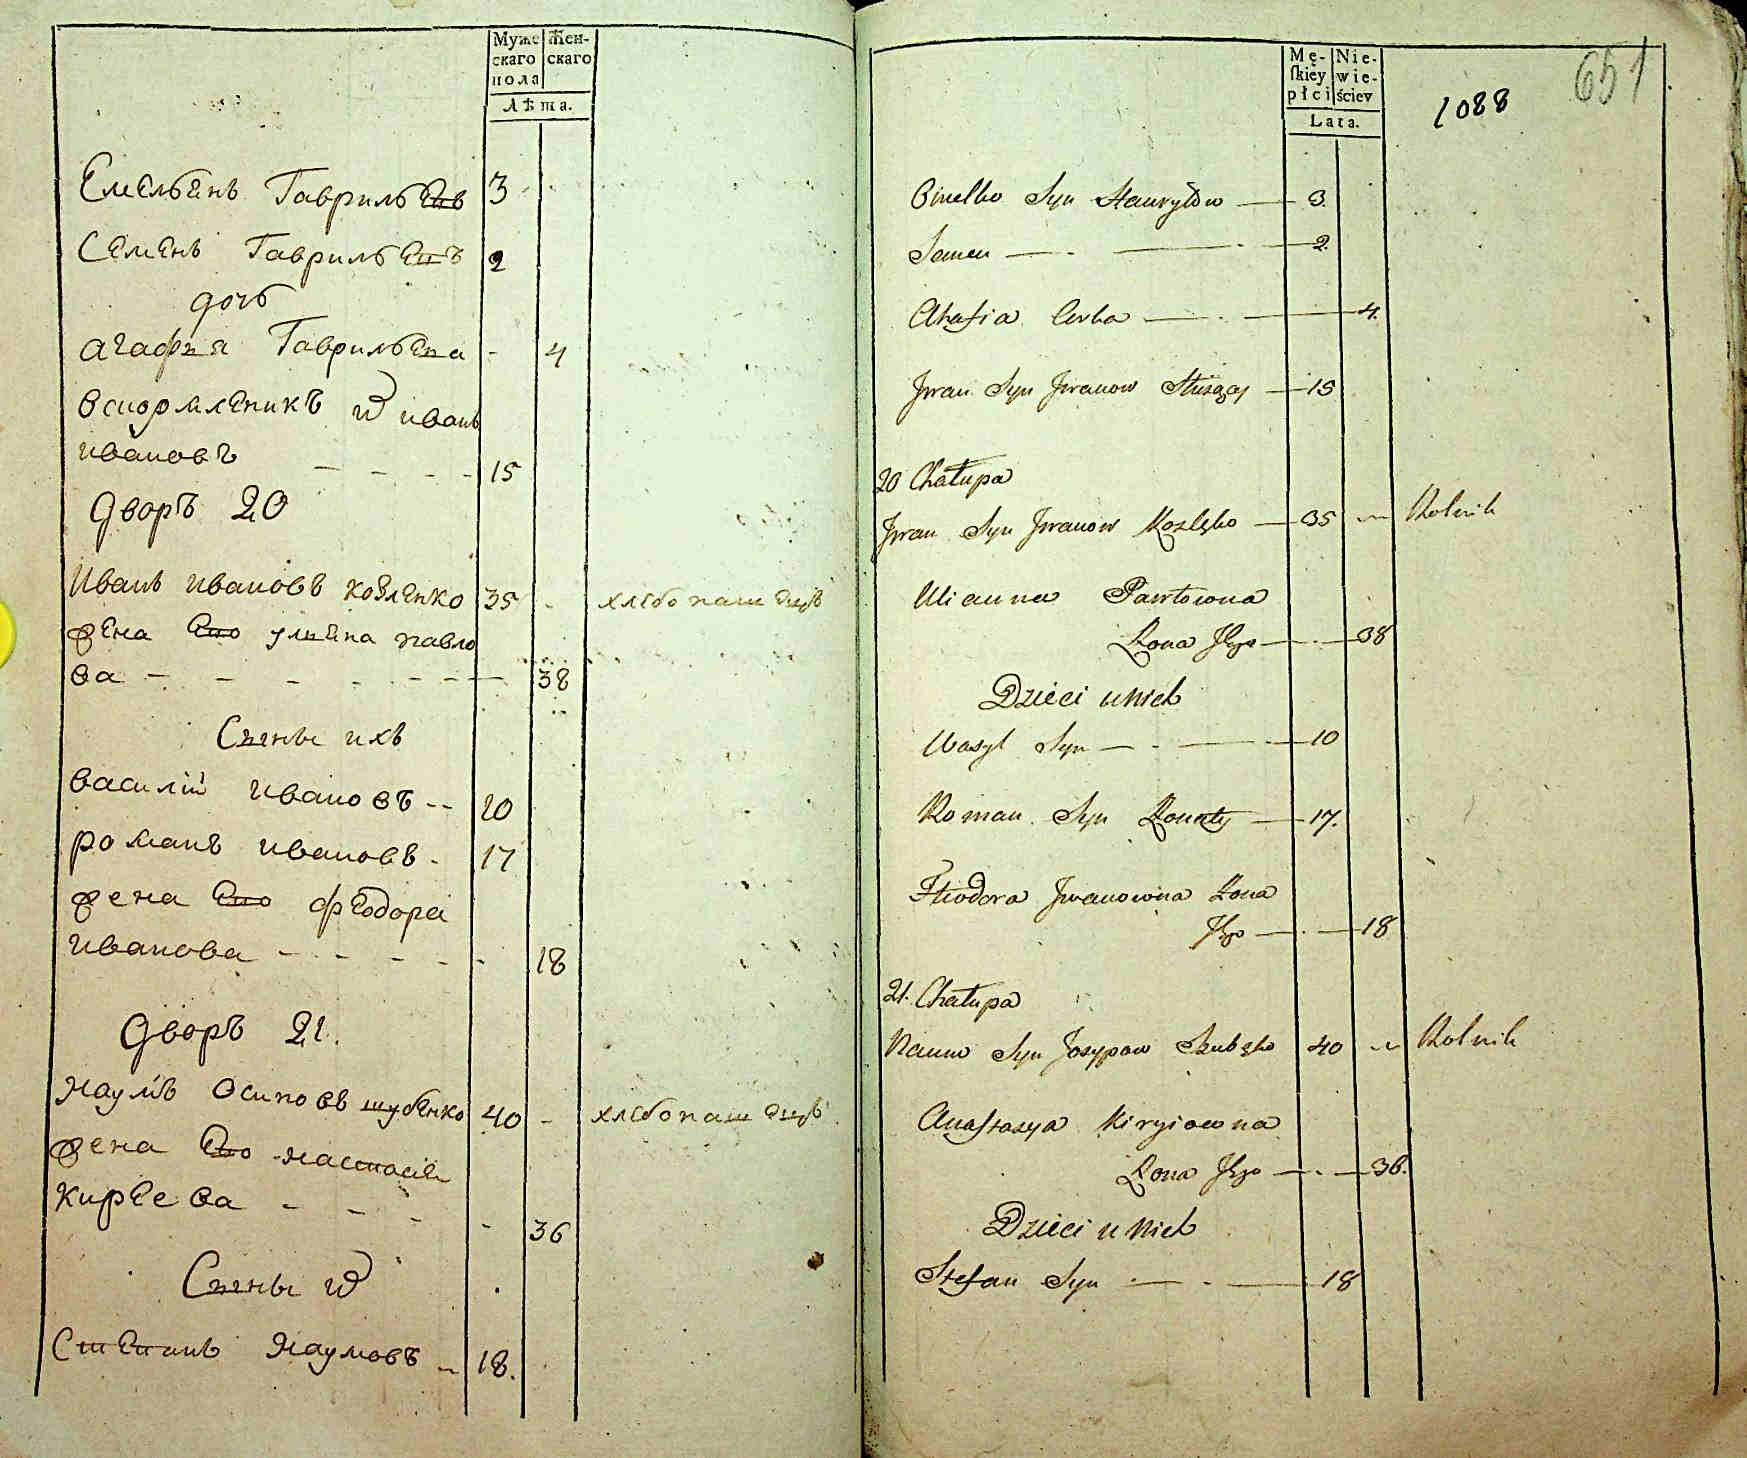 Муже Жен-
скаго скаго
пола
Лѣта.
Емельянъ Гаврильевъ 3
Семенъ Гаврильевъ 2
дочь
агафия Гаврильева - 4
вскормленикъ ихъ иванъ
ивановъ - - - - 15
Дворъ 20
Иванъ ивановъ козленко 35 - хлебопашецъ
жена его улияна павло
ва - - - - - - - 38
Сыны ихъ
василий ивановъ -- 10
романъ ивановъ - 17
жена его феодора
иванова - - - - - 18
Дворъ 21.
наумъ осиповъ шубенко 40 - хлебопашецъ
жена его настасия
киреева - - - - 36
Сыны ихъ
Степанъ наумовъ - 18.
Mę- Nie-
skiey wie-
płci ściey
Lata.
1088
651
Syn Hawryłow 3.
Semen 2.
Ahafia Corka 4.
Jwan Syn Jwanow Służący 15
20 Chałupa
Jwan Syn Jwanow Kozlęko 35 Rolnik
Ulianna Pawłowna
Żona Jego 38
Dzieci u Nich
Wasyl Syn 10
Roman Syn Żonaty 17.
Fheodora Jwanowna Żona
Jego 18
21. Chałupa
Naum Syn Josypow Szubęko 40 Rolnik
Anastazya Kiryiowna
Żona Jego 36.
Dzieci u Nich
Stefan Syn 18